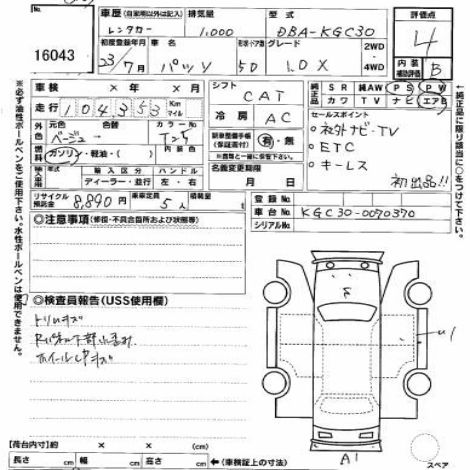 16043
車歴 (自家用以外は記入) 排気量 型式 評価点
レンタカー 1,000 DBA-KGC30 4
初度登録年月 車名 形状・ドア数 グレード 2WD・4WD 内装 補助評価 B
23/7月 パッソ 5D 1.0X
※必ず油性ボールペンをご使用下さい。水性ボールペンは使用不可
車検 × 年 × 月
シフト CAT
純正品 SR 純AW PS PW
カワ TV ナビ エアB
※純正品についているものに○をつけて下さい。
走行 104,353 Km マイル
冷房 AC
セールスポイント
○社外ナビ・TV
○ETC
○キーレス
初出品!!
外色 元色 色替 カラーNo.
ベージュ T25
燃料 ガソリン・軽油・( )
新車整備手帳(保証書付) 有・無
※書類と一緒に保管下さい。
輸入車 輸入区分 ハンドル
ディーラー・並行 左・右
名義変更期限 月 日
リサイクル預託金 8,890円 乗車定員 5人 積載量
登録No.
車台No. KGC30-0070370
シリアルNo.
◎注意事項 (修復・不具合箇所および状態等)
◎検査員報告 (USS使用欄)
トリムキズ
ホイールキズ
F
U1
A1
スペア
【荷台内寸】 (約) × × (cm)
長さ (cm) 幅 (cm) 高さ (cm) ←(車検証上の寸法)